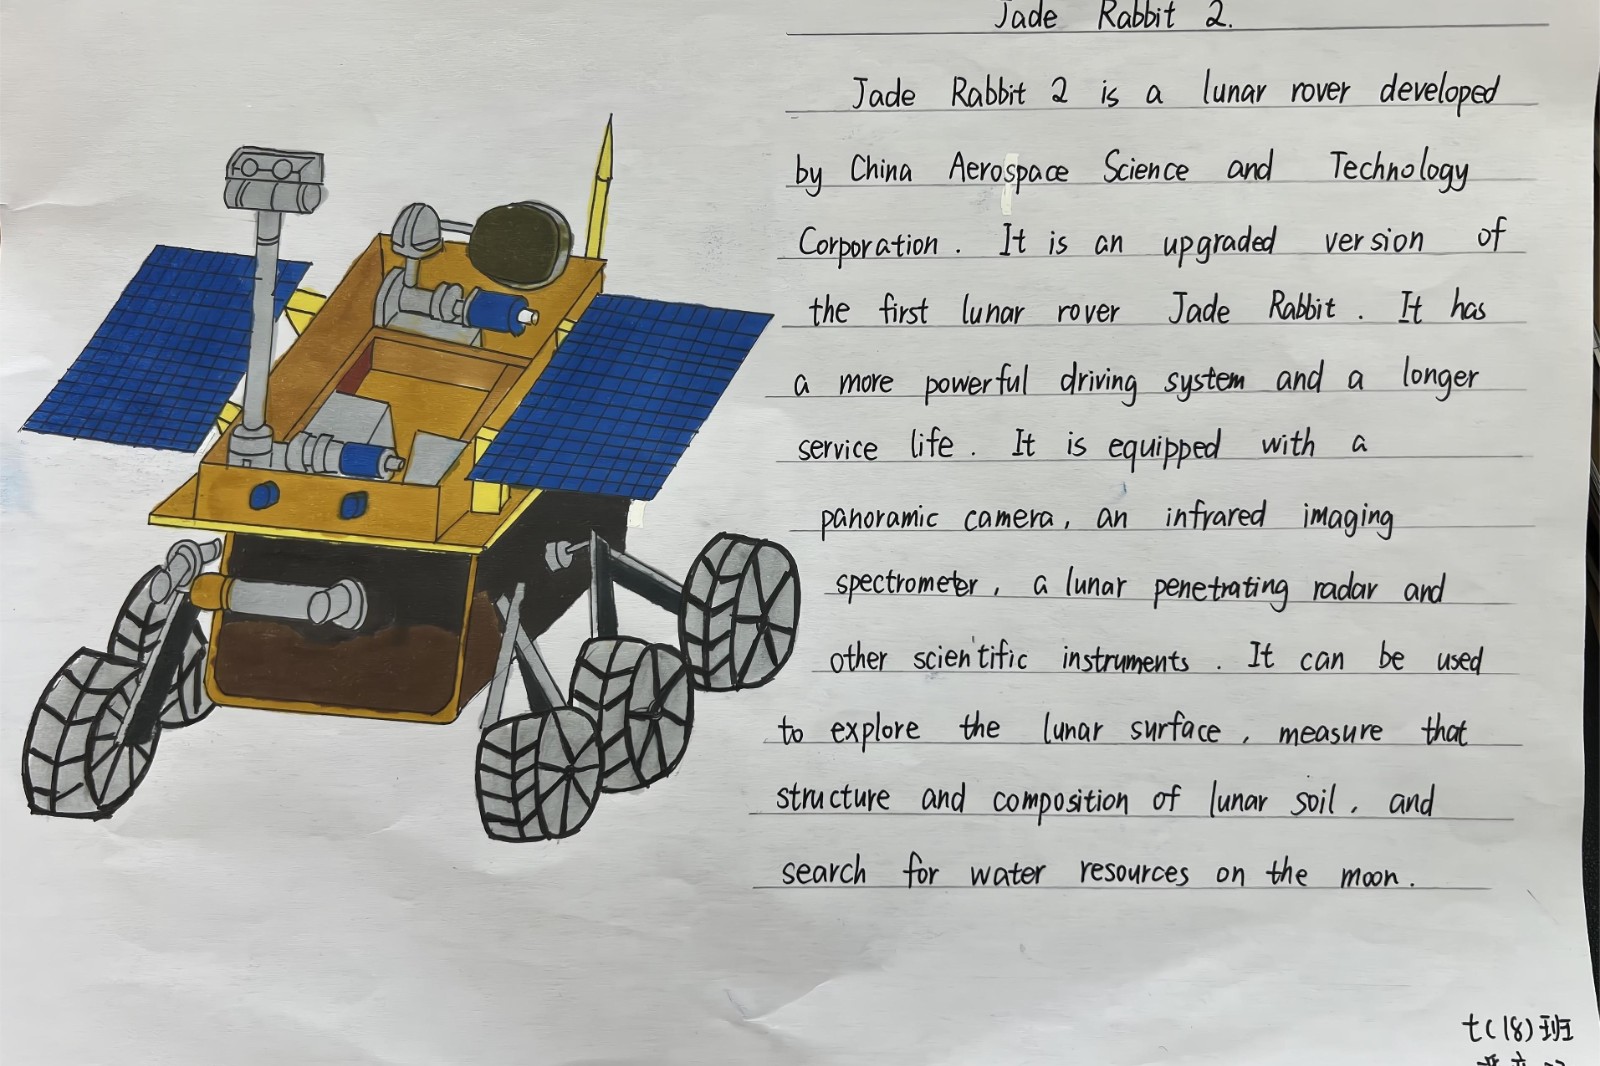 Jade Rabbit 2.
Jade Rabbit 2 is a lunar rover developed
by China Aerospace Science and Technology
Corporation. It is an upgraded version of
the first lunar rover Jade Rabbit. It has
a more powerful driving system and a longer
service life. It is equipped with a
panoramic camera, an infrared imaging
spectrometer, a lunar penetrating radar and
other scientific instruments. It can be used
to explore the lunar surface, measure that
structure and composition of lunar soil, and
search for water resources on the moon.
七(18)班